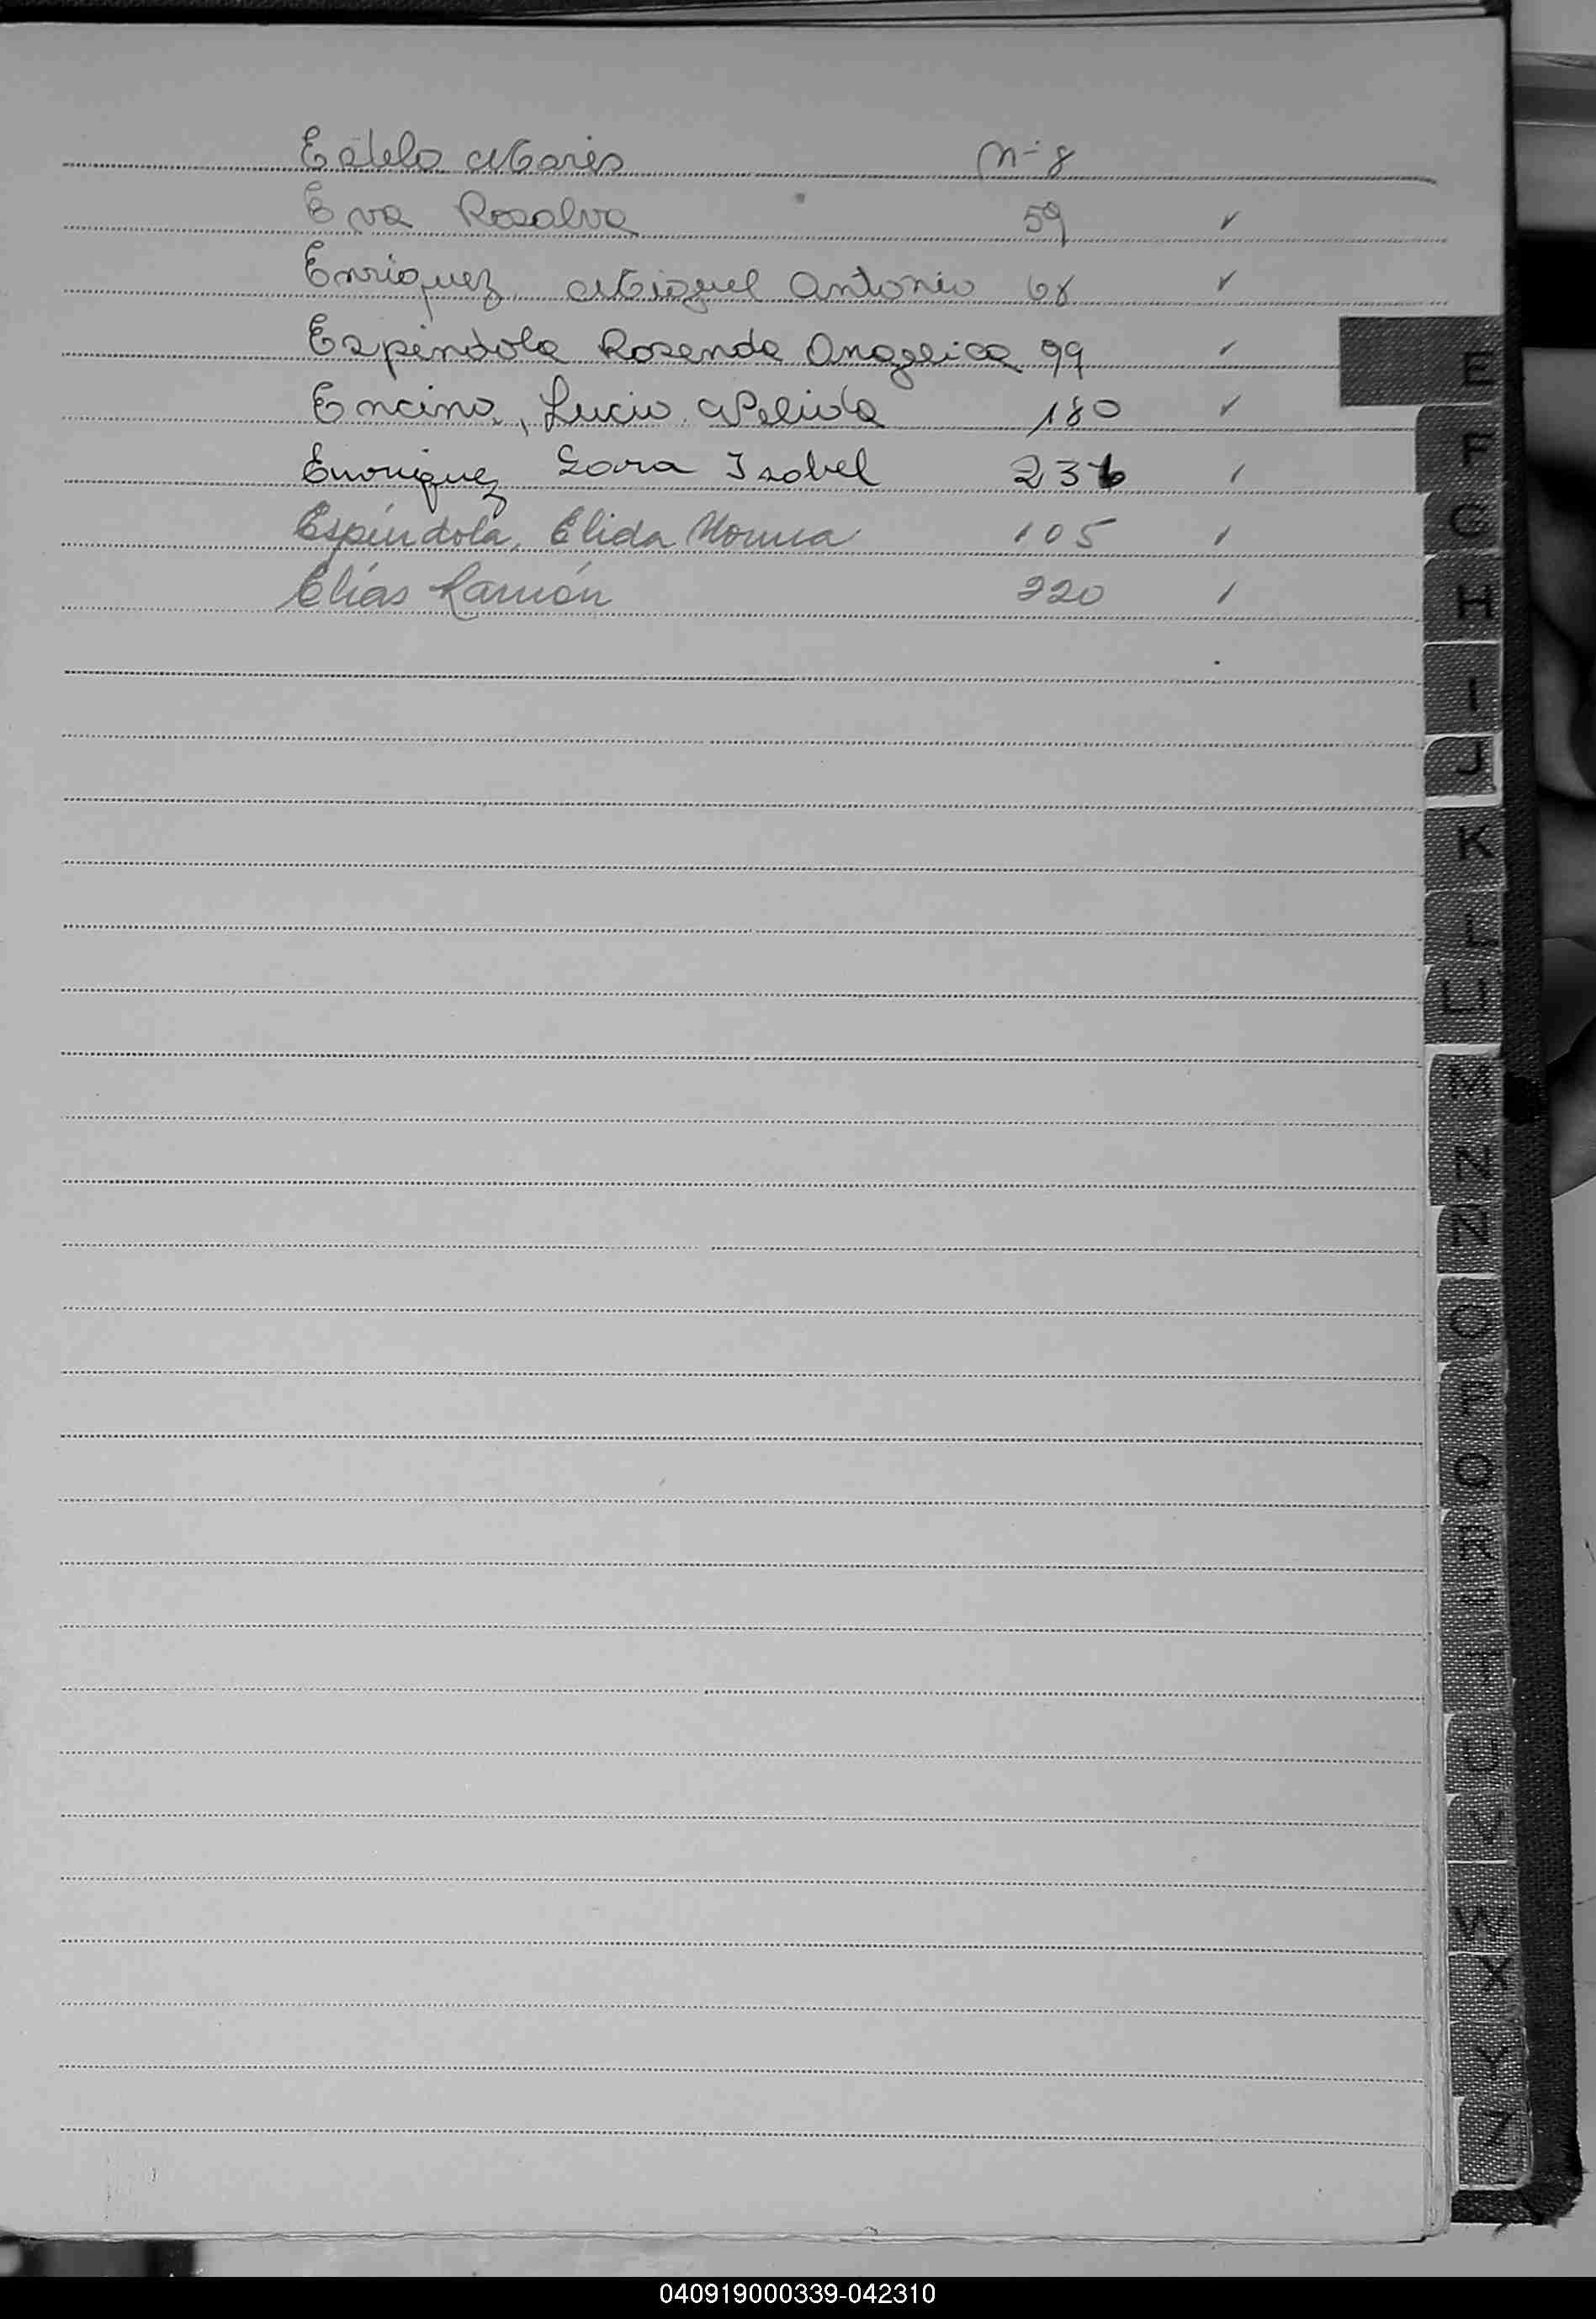 Estela Maris Nº 8
Eva Rosalva 59 ✓
Enriquez Miguel Antonio 68 ✓
Espindola Rosenda Angelica 99 ✓
Encina, Lucia Nelida 180 ✓
Enriquez Sara Isabel 236 ✓
Espíndola, Elida Norma 105 ✓
Elías Ramón 220 ✓
E
F
G
H
I
J
K
L
LL
M
N
Ñ
O
P
Q
R
S
T
U
V
W
X
Y
Z
040919000339-042310